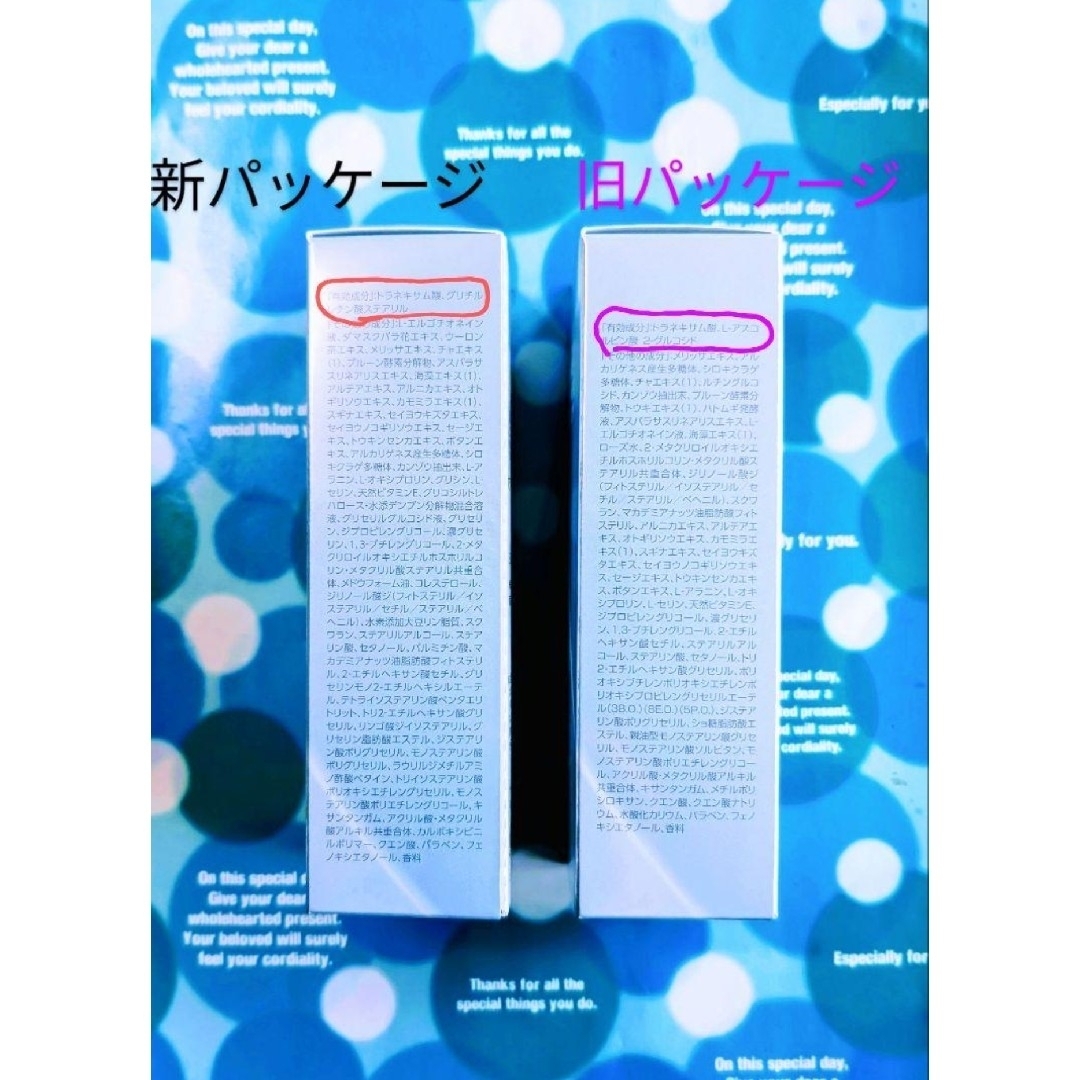 On this special day,
Give your dear a
wholehearted present.
Your beloved will surely
feel your cordiality.
Thanks for all the
special things you do.
Especially for y
新パッケージ
旧パッケージ
On this special day,
dear a
present.
will surely
cordiality.
[有効成分]トラネキサム酸、グリチル
チン酸ステアリル
L-エルゴチオネイン
液、ダマスクバラ花エキス、ウーロン
茶エキス、メリッサエキス、チャエキス
(1)、プルーン酵素分解物、アスパラサ
スリネアリスエキス、海藻エキス(1)、
アルテアエキス、アルニカエキス、オト
ギリソウエキス、カモミラエキス(1)、
スギナエキス、セイヨウキズタエキス、
セイヨウノコギリソウエキス、セージエ
キス、トウキンセンカエキス、ボタンエ
キス、アルカリゲネス産生多糖体、シロ
キクラゲ多糖体、カンゾウ抽出末、L-ア
ラニン、L-オキシプロリン、グリシン、L-
セリン、天然ビタミンE、グリコシルトレ
ハロース・水添デンプン分解物混合溶
液、グリセリルグルコシド液、グリセリ
ン、ジプロピレングリコール、濃グリセ
リン、1,3-ブチレングリコール、2-メタ
クリロイルオキシエチルホスホリルコ
リン・メタクリル酸ステアリル共重合
体、メドウフォーム油、コレステロール、
ジリノール酸ジ(フィトステリル/イソ
ステアリル/セチル/ステアリル/ベ
ヘニル)、水素添加大豆リン脂質、スク
ワラン、ステアリルアルコール、ステア
リン酸、セタノール、パルミチン酸、マ
カデミアナッツ油脂肪酸フィトステリ
ル、2-エチルヘキサン酸セチル、グリ
セリンモノ2-エチルヘキシルエーテ
ル、テトライソステアリン酸ペンタエリ
トリット、トリ2-エチルヘキサン酸グリ
セリル、リンゴ酸ジイソステアリル、グ
リセリン脂肪酸エステル、ジステアリ
ン酸ポリグリセリル、モノステアリン酸
ポリグリセリル、ラウリルジメチルアミ
ノ酢酸ベタイン、トリイソステアリン酸
ポリオキシエチレングリセリル、モノス
テアリン酸ポリエチレングリコール、キ
サンタンガム、アクリル酸・メタクリル
酸アルキル共重合体、カルボキシビニ
ルポリマー、クエン酸、パラベン、フェ
ノキシエタノール、香料
[有効成分]トラネキサム酸、L-アスコ
ルビン酸 2-グルコシド
[その他の成分]メリッサエキス、アル
カリゲネス産生多糖体、シロキクラゲ
多糖体、チャエキス(1)、ルチングルコ
シド、カンゾウ抽出末、プルーン酵素分
解物、トウキエキス(1)、ハトムギ発酵
液、アスパラサスリネアリスエキス、L-
エルゴチオネイン液、海藻エキス(1)、
ローズ水、2-メタクリロイルオキシエ
チルホスホリルコリン・メタクリル酸ス
テアリル共重合体、ジリノール酸ジ
(フィトステリル/イソステアリル/セ
チル/ステアリル/ベヘニル)、スクワ
ラン、マカデミアナッツ油脂肪酸フィト
ステリル、アルニカエキス、アルテアエ
キス、オトギリソウエキス、カモミラエ
キス(1)、スギナエキス、セイヨウキズ
タエキス、セイヨウノコギリソウエキ
ス、セージエキス、トウキンセンカエキ
ス、ボタンエキス、L-アラニン、L-オキ
シプロリン、L-セリン、天然ビタミンE、
ジプロピレングリコール、濃グリセリ
ン、1,3-ブチレングリコール、2-エチル
ヘキサン酸セチル、ステアリルアル
コール、ステアリン酸、セタノール、トリ
2-エチルヘキサン酸グリセリル、ポリ
オキシブチレンポリオキシエチレンポ
リオキシプロピレングリセリルエーテ
ル(3B.O.)(8E.O.)(5P.O.)、ジステア
リン酸ポリグリセリル、ショ糖脂肪酸エ
ステル、親油型モノステアリン酸グリセ
リル、モノステアリン酸ソルビタン、モ
ノステアリン酸ポリエチレングリコー
ル、アクリル酸・メタクリル酸アルキル
共重合体、キサンタンガム、メチルポリ
シロキサン、クエン酸、クエン酸ナトリ
ウム、水酸化カリウム、パラベン、フェノ
キシエタノール、香料
Thanks for a
special things y
y for you.
ecial day,
dear a
present.
will surely
cordiality.
On this special
Give your dear
wholehearted present.
Your beloved will surely
feel your cordiality.
Thanks for all the
special things you do.
Especially for
On this special day,